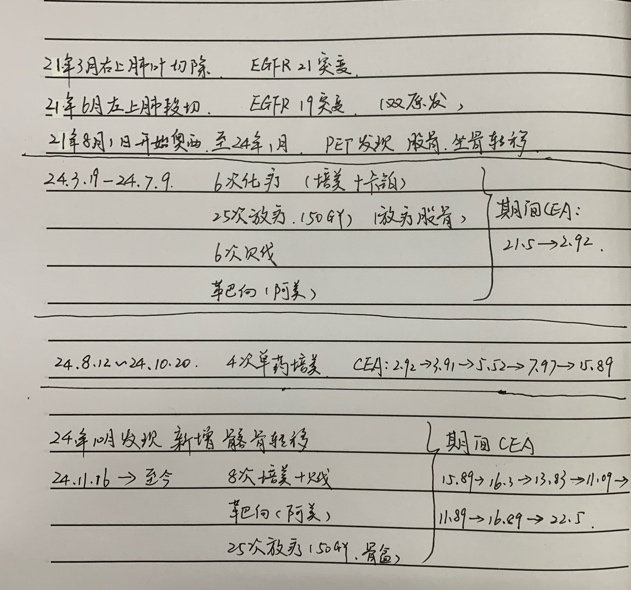 21年3月右上肺叶切除 EGFR 21突变
21年6月左上肺段切 EGFR 19突变 (双原发)
21年8月1日开始奥西 至24年1月 PET发现 股骨.坐骨转移
24.3.19-24.7.9. 6次化疗 (培美+卡铂)
25次放疗(50GY) (放疗股骨)
6次贝伐
靶向(阿美)
期间CEA:
21.5→2.92.
24.8.12~24.10.20. 4次单药培美 CEA:2.92→3.91→5.52→7.97→15.89
24年10月发现 新增髂骨转移
24.11.16→至今 8次培美+贝伐
靶向(阿美)
25次放疗(50GY.骨盆)
期间CEA
15.89→16.3→13.83→11.09→
11.89→16.29→22.5.